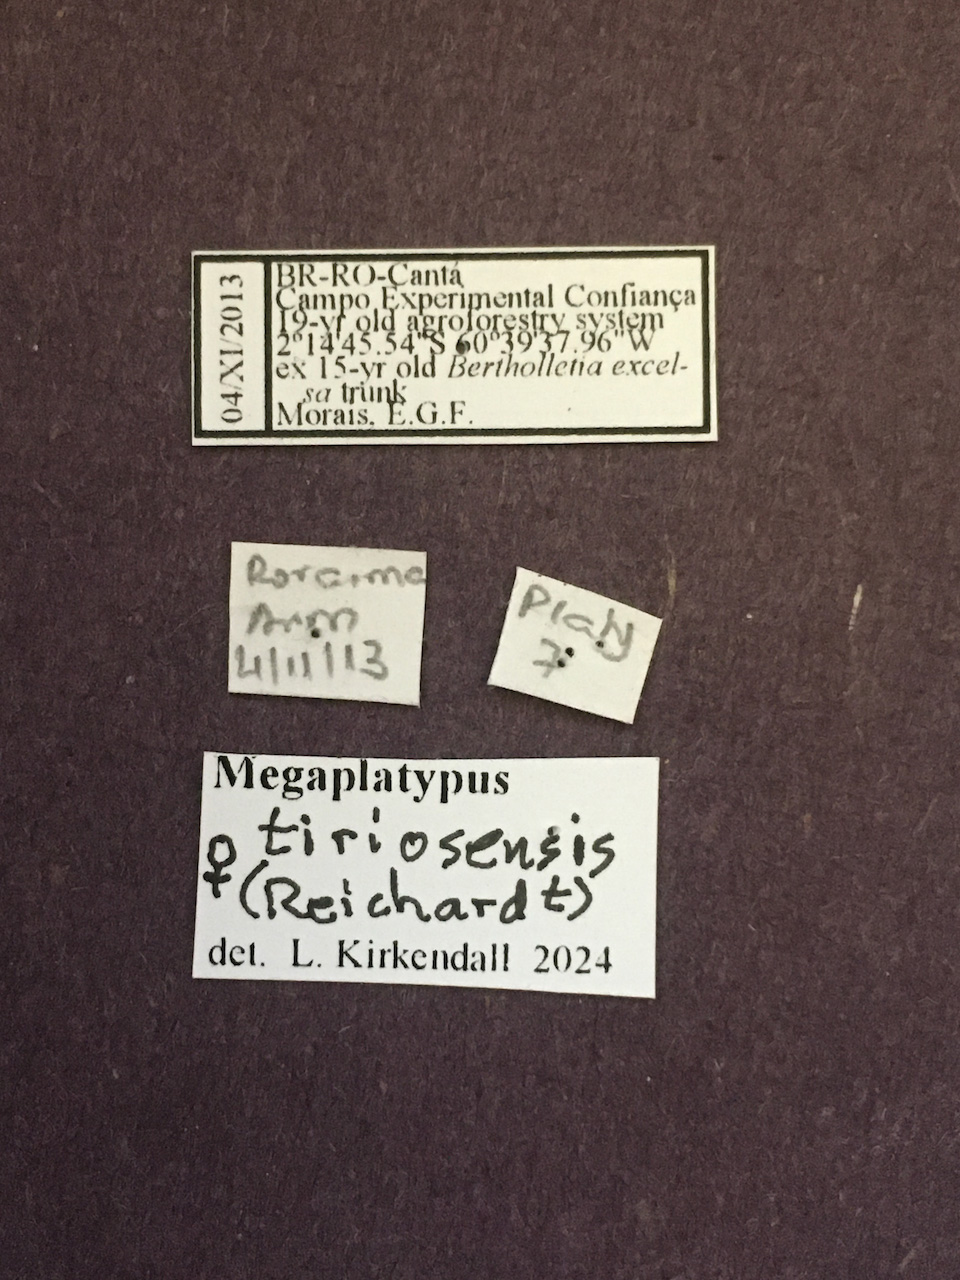 04/XI/2013
BR-RO-Cantá
Campo Experimental Confiança
19-yr old agroforestry system
2°14'45.54"S 60°39'37.96"W
ex 15-yr old Bertholletia excel-
sa trunk
Morais, E.G.F.
Roraima
4/11/13
Platy
7
Megaplatypus
♀ tiriosensis
(Reichardt)
det. L. Kirkendall 2024